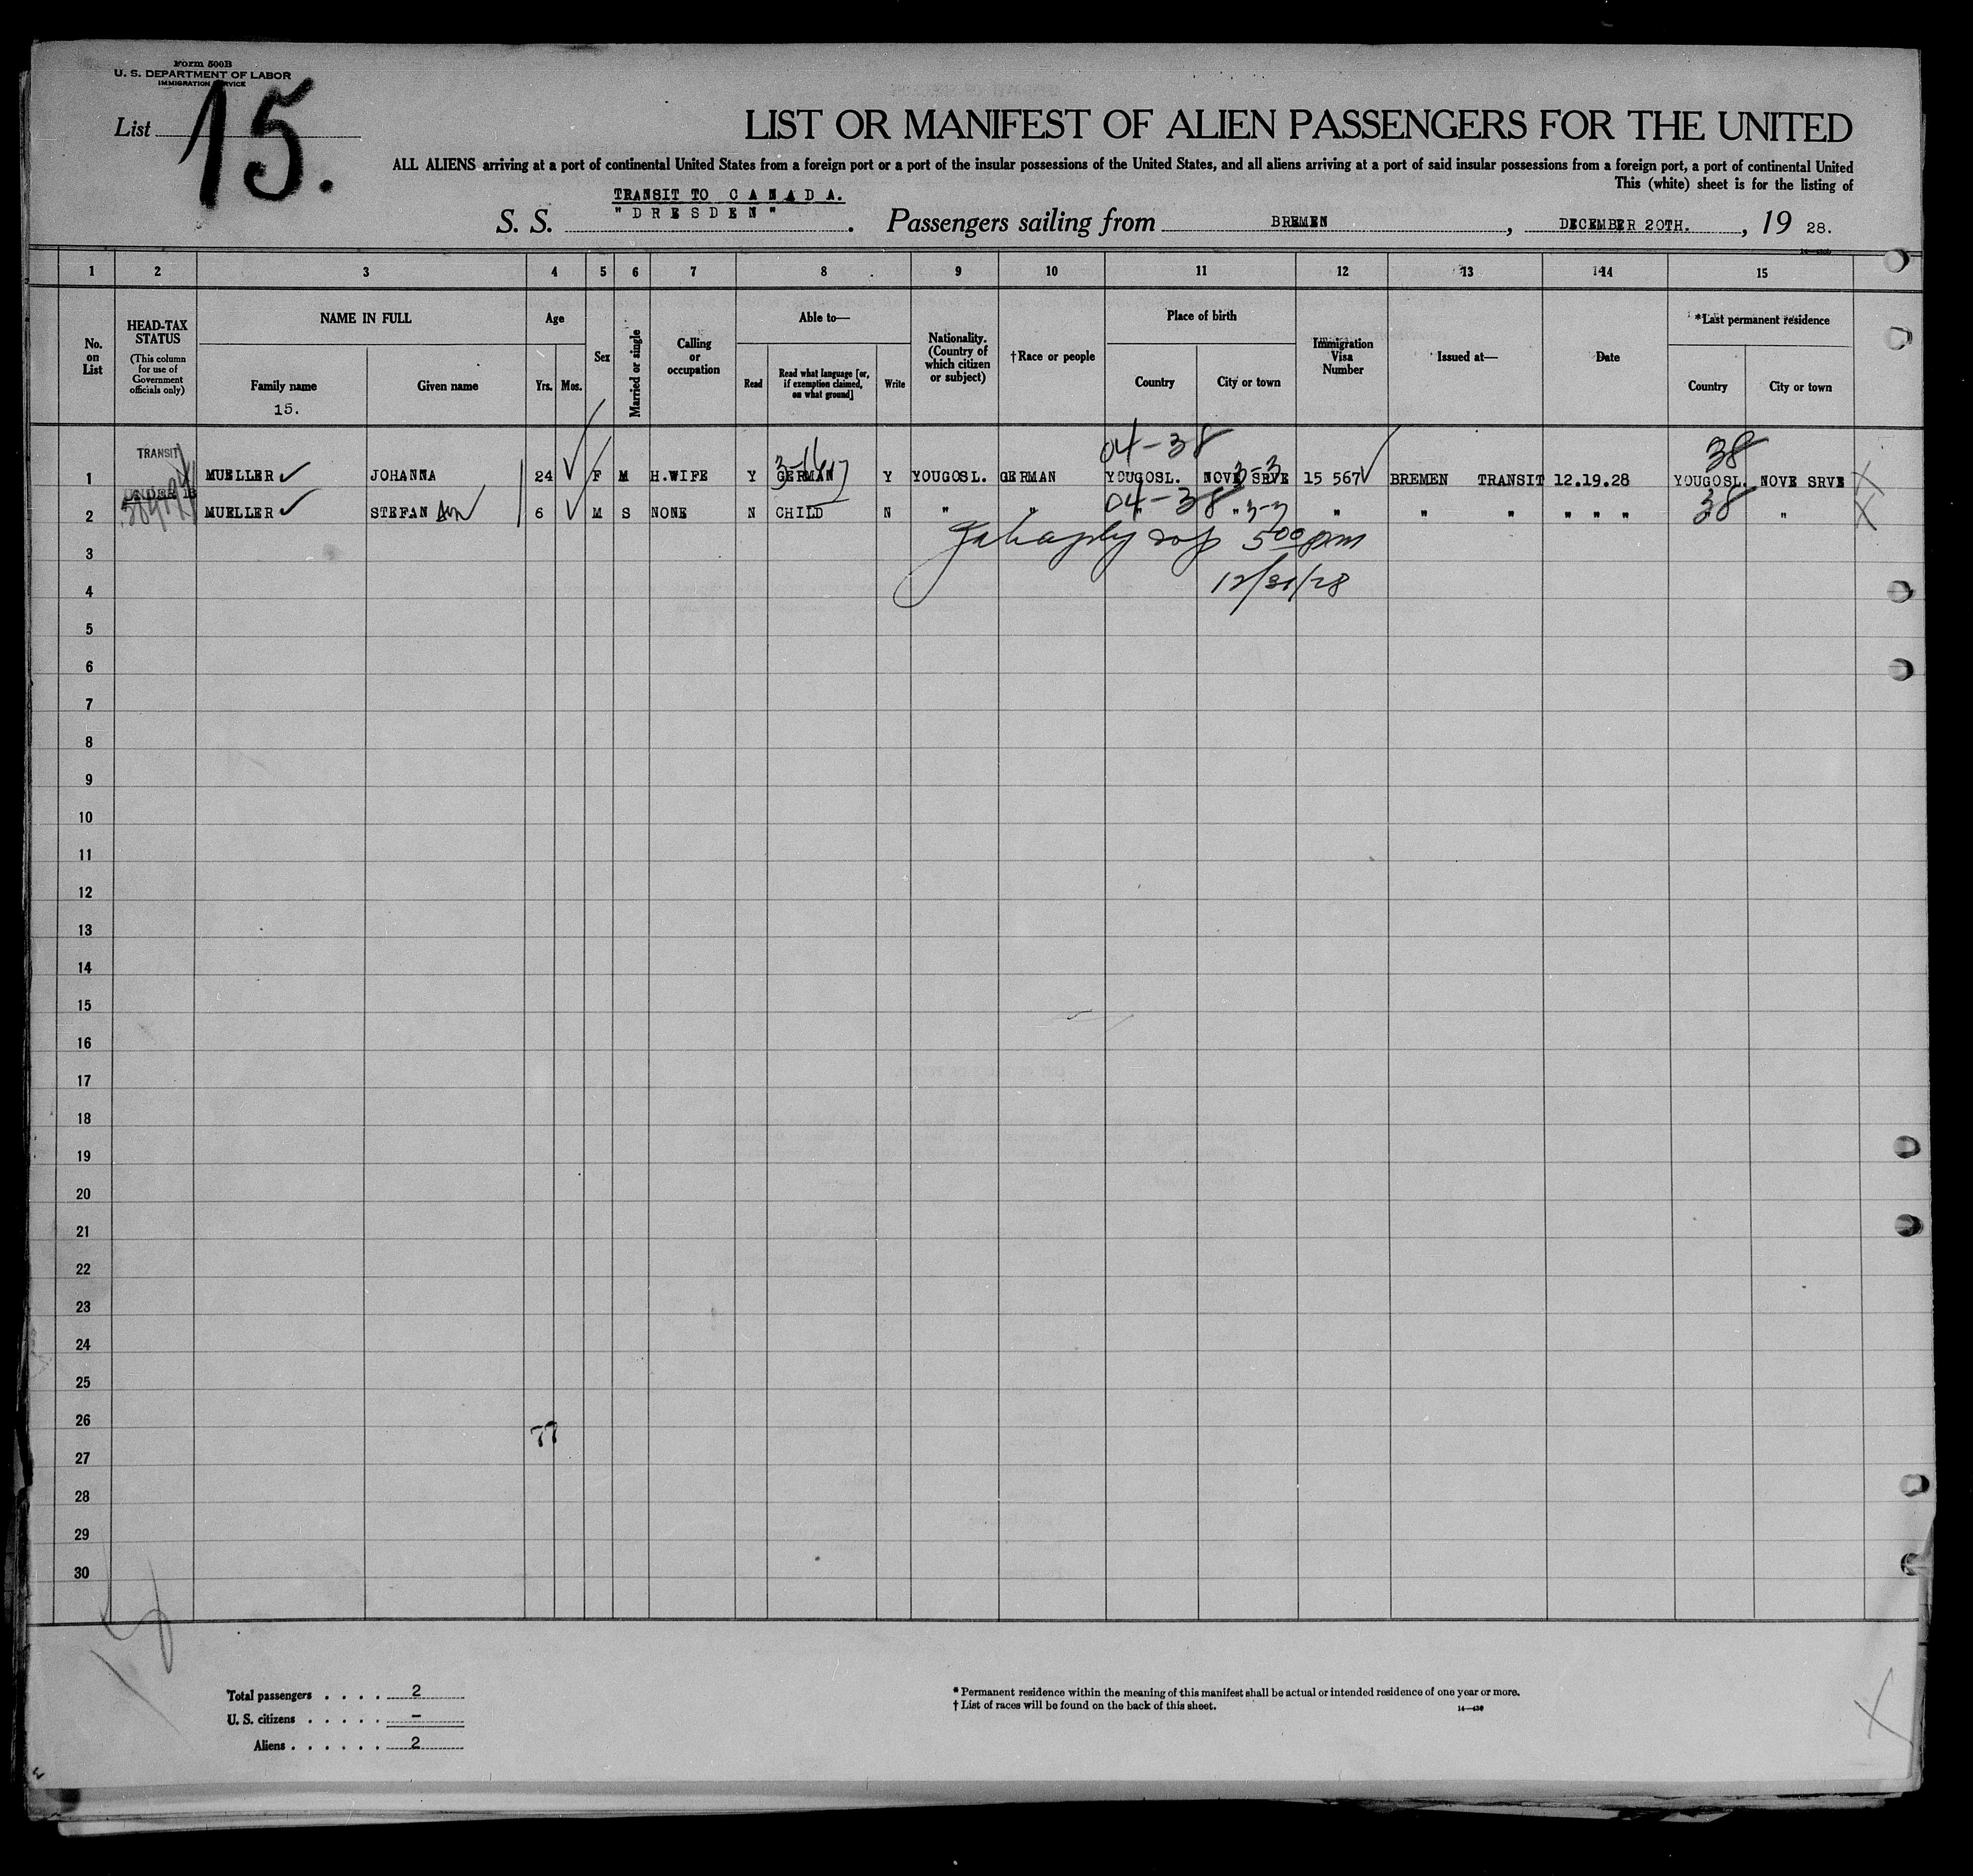 Form 500B
U. S. DEPARTMENT OF LABOR
IMMIGRATION SERVICE
List 15.
LIST OR MANIFEST OF ALIEN PASSENGERS FOR THE UNITED
ALL ALIENS arriving at a port of continental United States from a foreign port or a port of the insular possessions of the United States, and all aliens arriving at a port of said insular possessions from a foreign port, a port of continental United
This (white) sheet is for the listing of
TRANSIT TO C A N A D A.
S. S. "D R E S D E N". Passengers sailing from BREMEN, DECEMBER 20TH., 19 28.
1 2 3 4 5 6 7 8 9 10 11 12 13 14 15
No. on List
HEAD-TAX STATUS
(This column for use of Government officials only)
NAME IN FULL
Family name
15.
Given name
Age
Yrs. Mos.
Sex
Married or single
Calling or occupation
Able to—
Read
Read what language [or, if exemption claimed, on what ground]
Write
Nationality. (Country of which citizen or subject)
†Race or people
Place of birth
Country
City or town
Immigration Visa Number
Issued at—
Date
*Last permanent residence
Country
City or town
04-38 38
TRANSIT 3-3
1 MUELLER JOHANNA 24 F M H.WIFE Y GERMAN Y YOUGOSL. GERMAN YOUGOSL. NOVE SRVE 15 567 BREMEN TRANSIT 12.19.28 YOUGOSL. NOVE SRVE
UNDER 16 04-38 38
2 MUELLER STEFAN 6 M S NONE N CHILD N " " " " " " " " " " "
500 pm
3
12/31/28
4
5
6
7
8
9
10
11
12
13
14
15
16
17
18
19
20
21
22
23
24
25
26
77
27
28
29
30
Total passengers . . . . 2
U. S. citizens . . . . . –
Aliens . . . . . . 2
* Permanent residence within the meaning of this manifest shall be actual or intended residence of one year or more.
† List of races will be found on the back of this sheet.